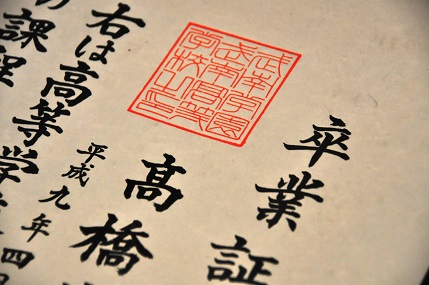 卒業証
武南学園
武南高等
学校之印
髙橋
平成九年四
右は高等学
課程